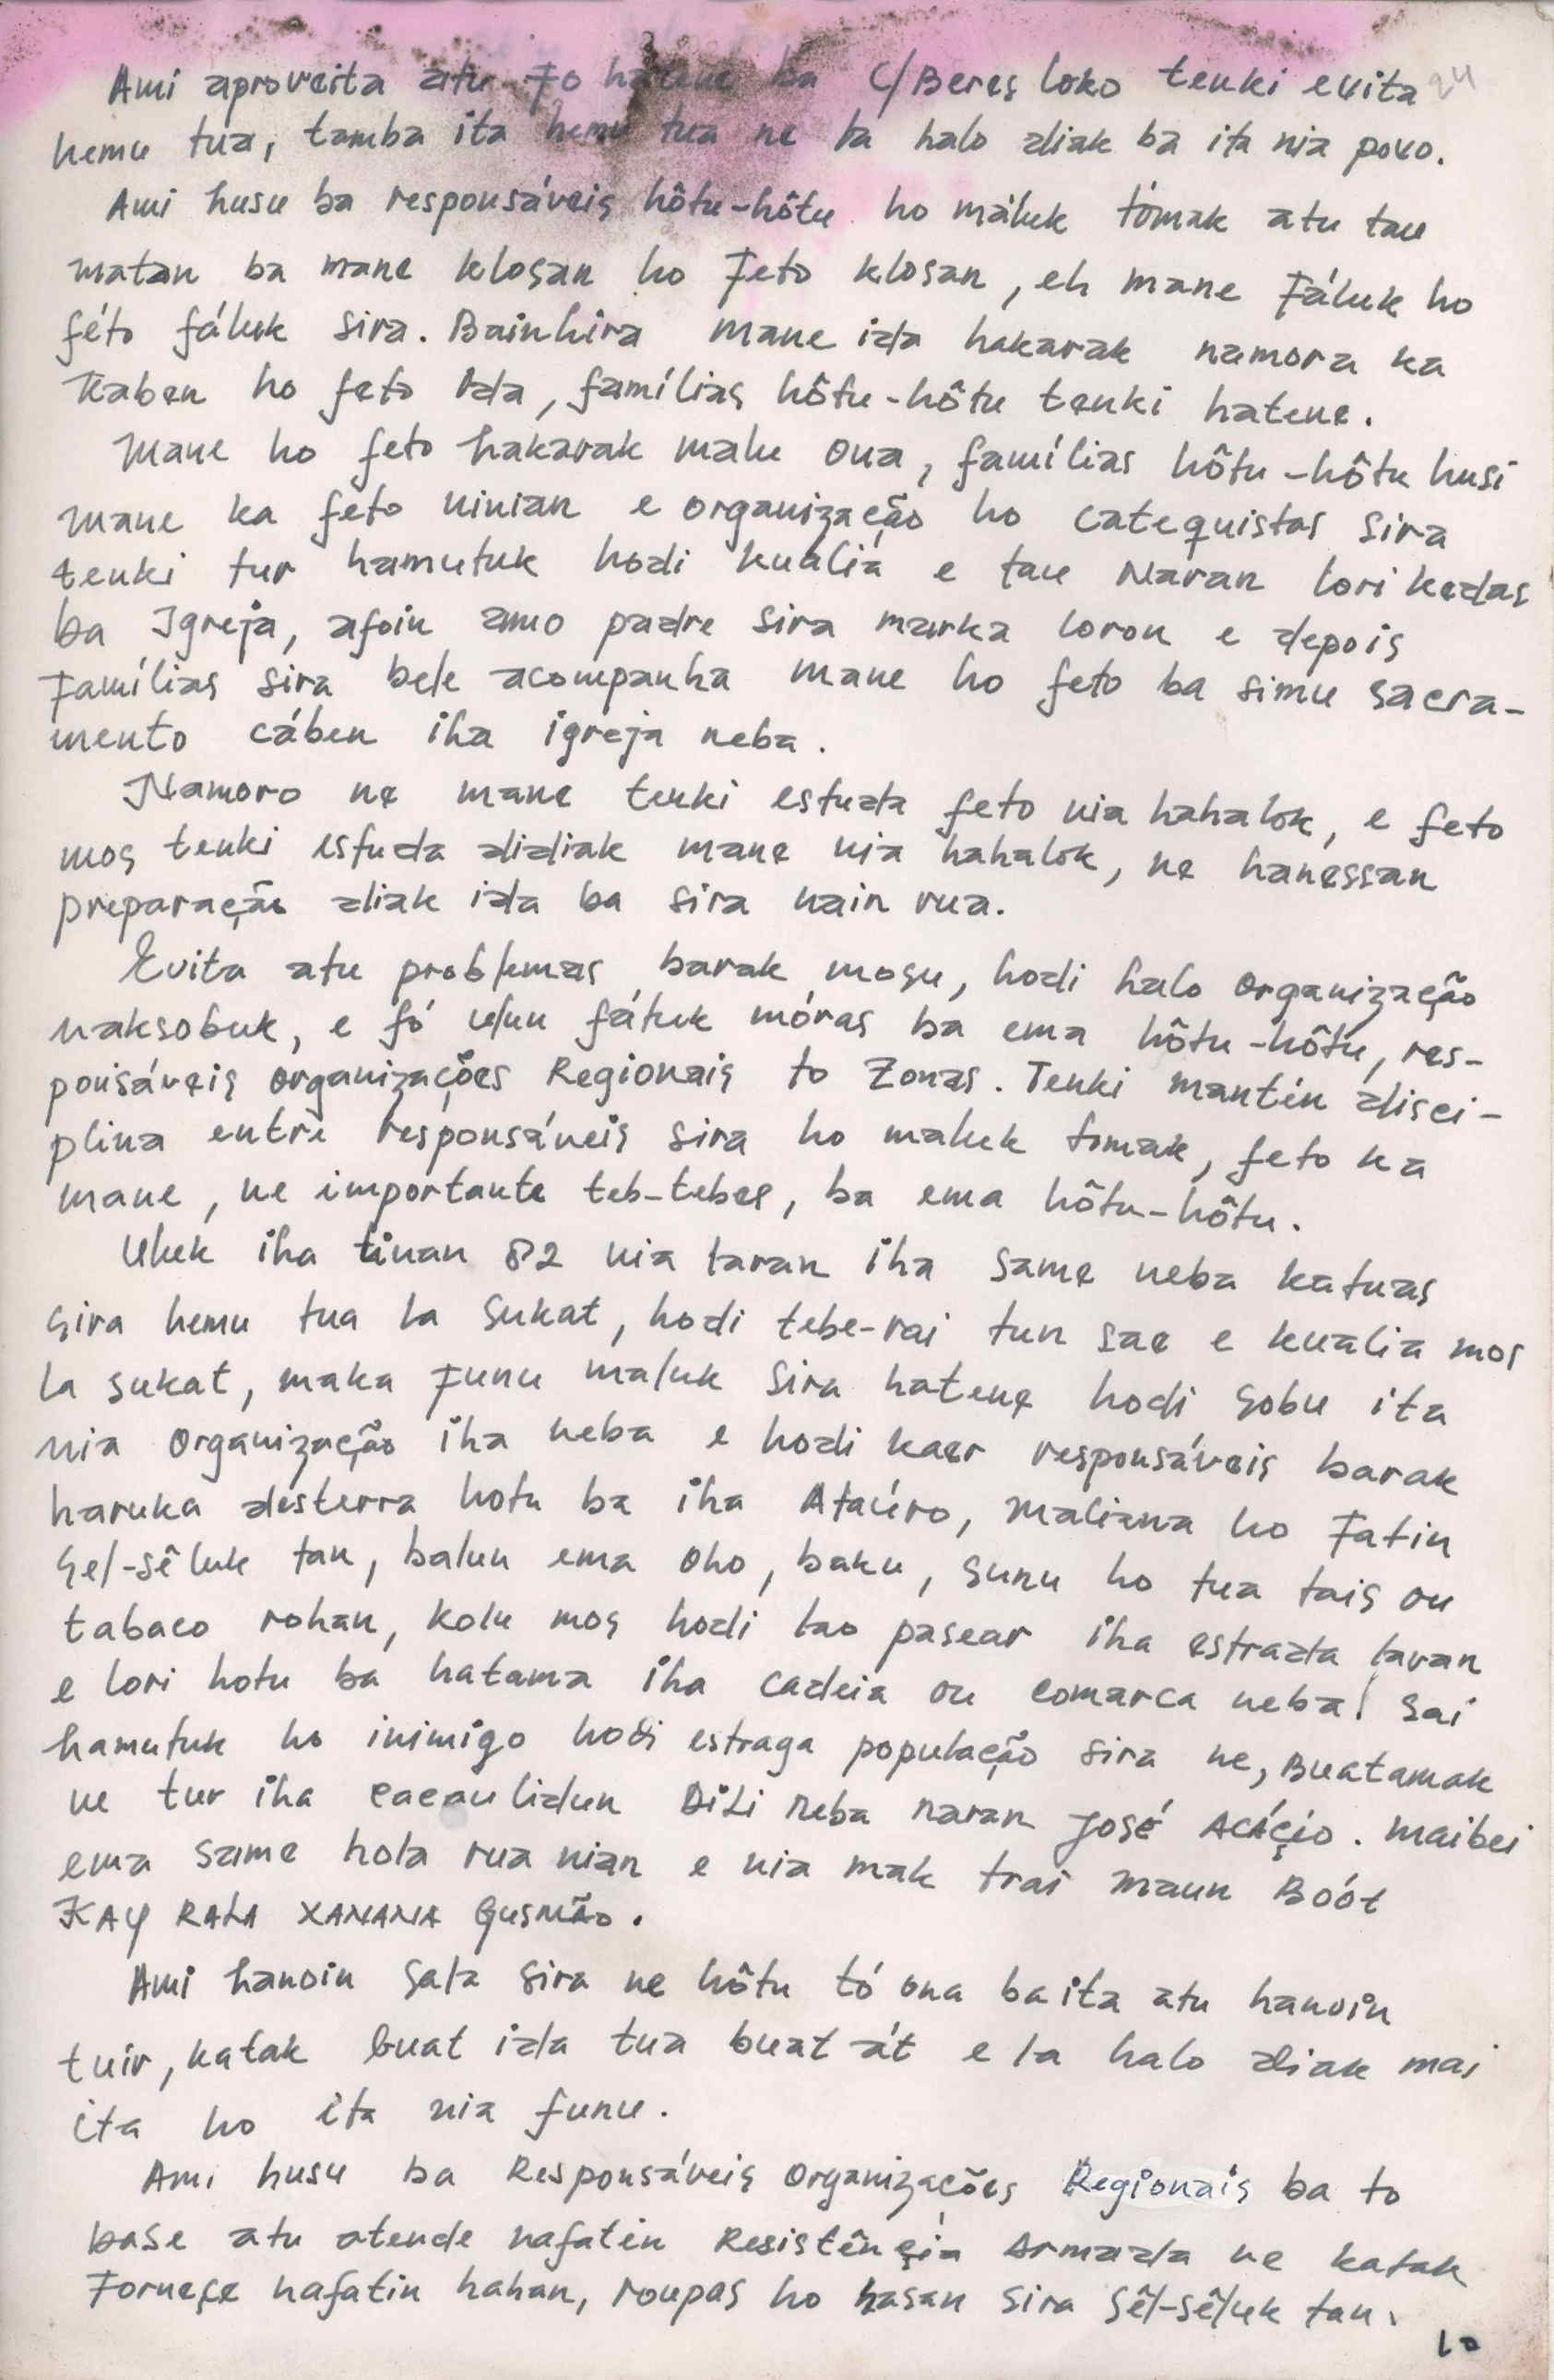 Ami aproveita atu Fo hatene ba C/Beres loko tenki evita 94
hemu tua, tamba ita hemu tua ne la halo diak ba ita nia povo.
Ami husu ba responsáveis hôtu-hôtu ho máluk tómak atu tau
matan ba mane klosan ho Feto klosan, eh mane Fáluk ho
féto fáluk sira. Bainhira mane ida hakarak namora ka
Kaben ho feto ida, famílias hôtu-hôtu tenki hatene.
Mane ho feto hakarak malu Ona, famílias hôtu-hôtu husi
mane ka feto ninian e organização ho catequistas sira
tenki tur hamutuk hodi kuália e tau Naran lori kedas
ba Igreja, afoin amo padre sira marka loron e depois
Famílias sira bele acompanha mane ho feto ba simu sacra-
mento cáben iha igreja neba.
Namoro ne mane tenki estuda feto nia hahalok, e feto
mos tenki estuda didiak mane nia hahalok, ne hanessan
preparação diak ida ba sira nain rua.
Evita atu problemas barak mosu, hodi halo organização
naksobuk, e fó ulun fátuk móras ba ema hôtu-hôtu, res-
ponsáveis organizações Regionais to Zonas. Tenki mantén disci-
plina entre responsáveis sira ho maluk tomak, feto ka
mane, ne importante teb-tebes, ba ema hôtu-hôtu.
Uluk iha tinan 82 nia laran iha same neba katuas
sira hemu tua la sukat, hodi tebe-rai tun sae e kualia mos
la sukat, maka Funu maluk sira hatene hodi sobu ita
nia organização iha neba e hodi kaer responsáveis barak
haruka desterra hotu ba iha Ataúro, Maliana ho Fatin
sel-sêluk tan, balun ema oho, baku, sunu ho tua tais ou
tabaco rohan, kolu mos hodi lao pasear iha estrada laran
e lori hotu ba hatama iha cadeia ou comarca neba! Sai
hamutuk ho inimigo hodi estraga população sira ne, Buatamak
ne tur iha cacaulidun DiLi neba naran José Acáçio. Maibei
ema same hola rua nian e nia mak trai Maun Bóót
KAY RALA XANANA Gusmão.
Ami hanoin sala sira ne hôtu tó ona ba ita atu hanoin
tuir, katak buat ida tua buat át e la halo diak mai
ita ho ita nia funu.
Ami husu ba Responsáveis Organizações Regionais ba to
base atu atende nafatin Resistênçia Armada ne katak
Forneçe nafatin hahan, roupas ho hasan sira sêl-sêluk tan.
10